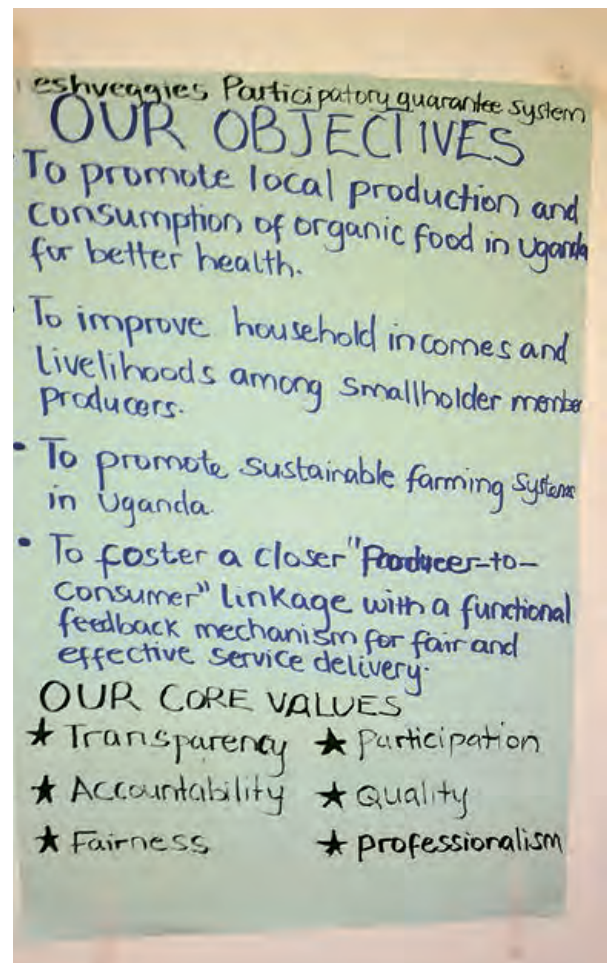 eshveggies Participatory guarantee system
OUR OBJECTIVES
To promote local production and
consumption of organic food in Uganda
for better health.
To improve household incomes and
livelihoods among smallholder member
producers.
• To promote sustainable farming systems
in Uganda.
• To foster a closer "Producer-to-
Consumer" linkage with a functional
feedback mechanism for fair and
effective service delivery.
OUR CORE VALUES
★ Transparency ★ Participation
★ Accountability ★ Quality
★ Fairness ★ professionalism